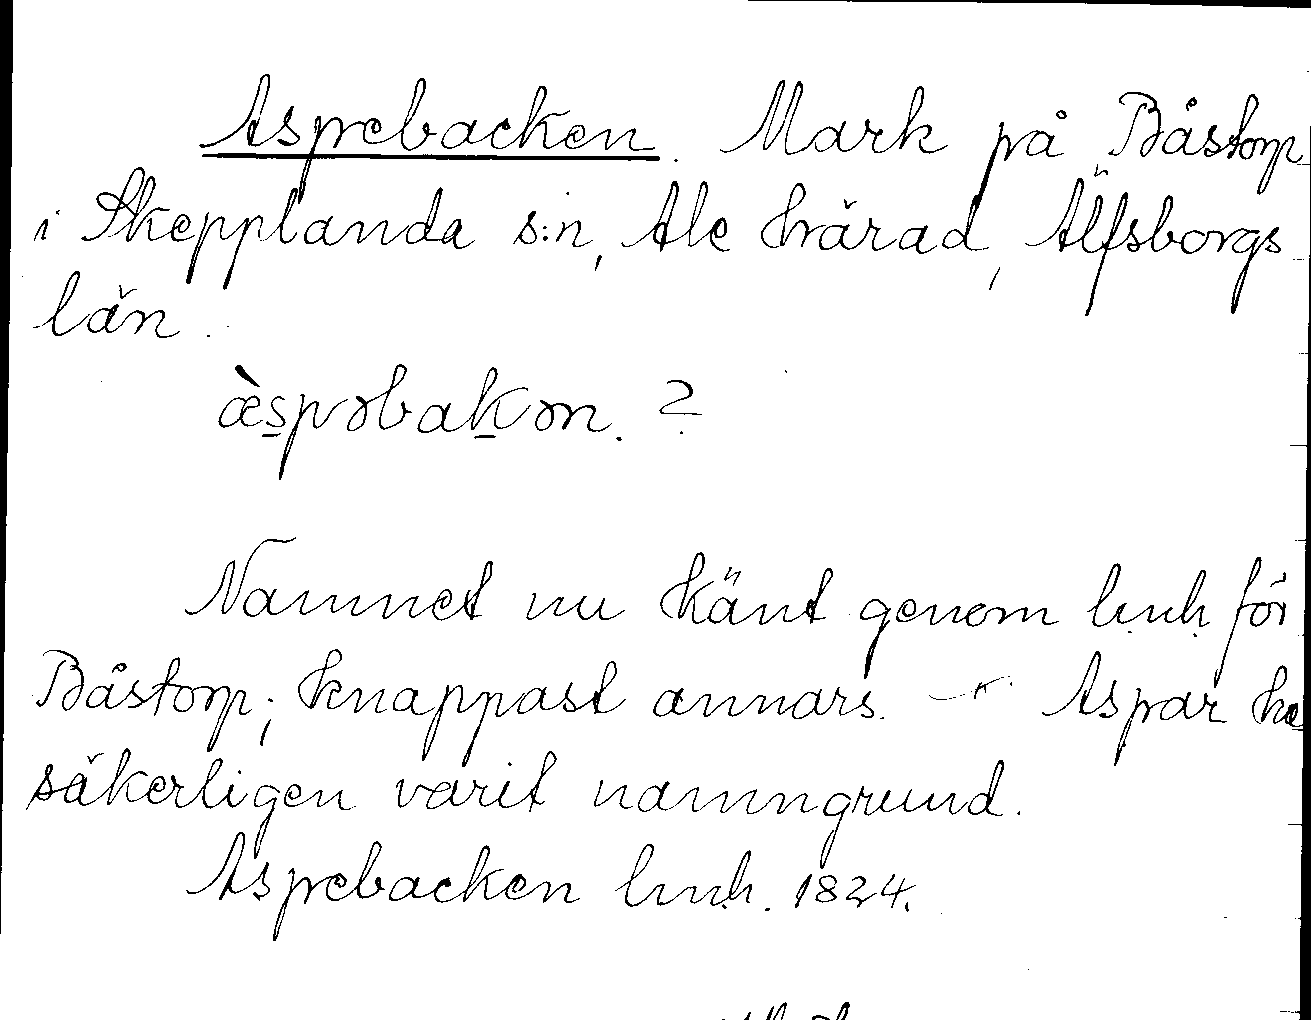 Aspebacken. Mark på Båstorp
i Skepplanda s:n, Ale härad, Älfsborgs
län.
æ̀spəbakən. ?
Namnet nu känt genom lmh. för
Båstorp; knappast annars. — Aspar ha
säkerligen varit namngrund.
Aspebacken lmh. 1824.